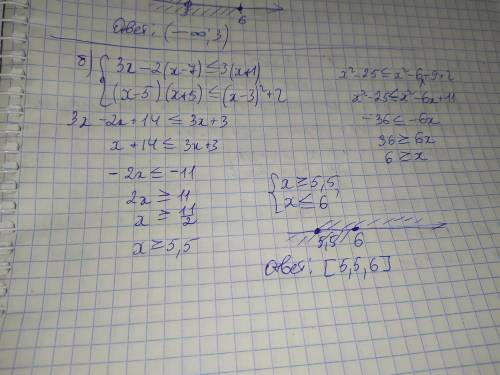 3 6
Ответ: (-∞; 3)
б) { 3x-2(x-7)≤3(x+1)
(x-5)(x+5)≤(x-3)²+2
3x-2x+14≤3x+3
x+14≤3x+3
-2x≤-11
2x≥11
x≥11/2
x≥5,5
x²-25≤x²-6x+9+2
x²-25≤x²-6x+11
-36≤-6x
36≥6x
6≥x
{ x≥5,5
x≤6
5,5 6
Ответ: [5,5,6]